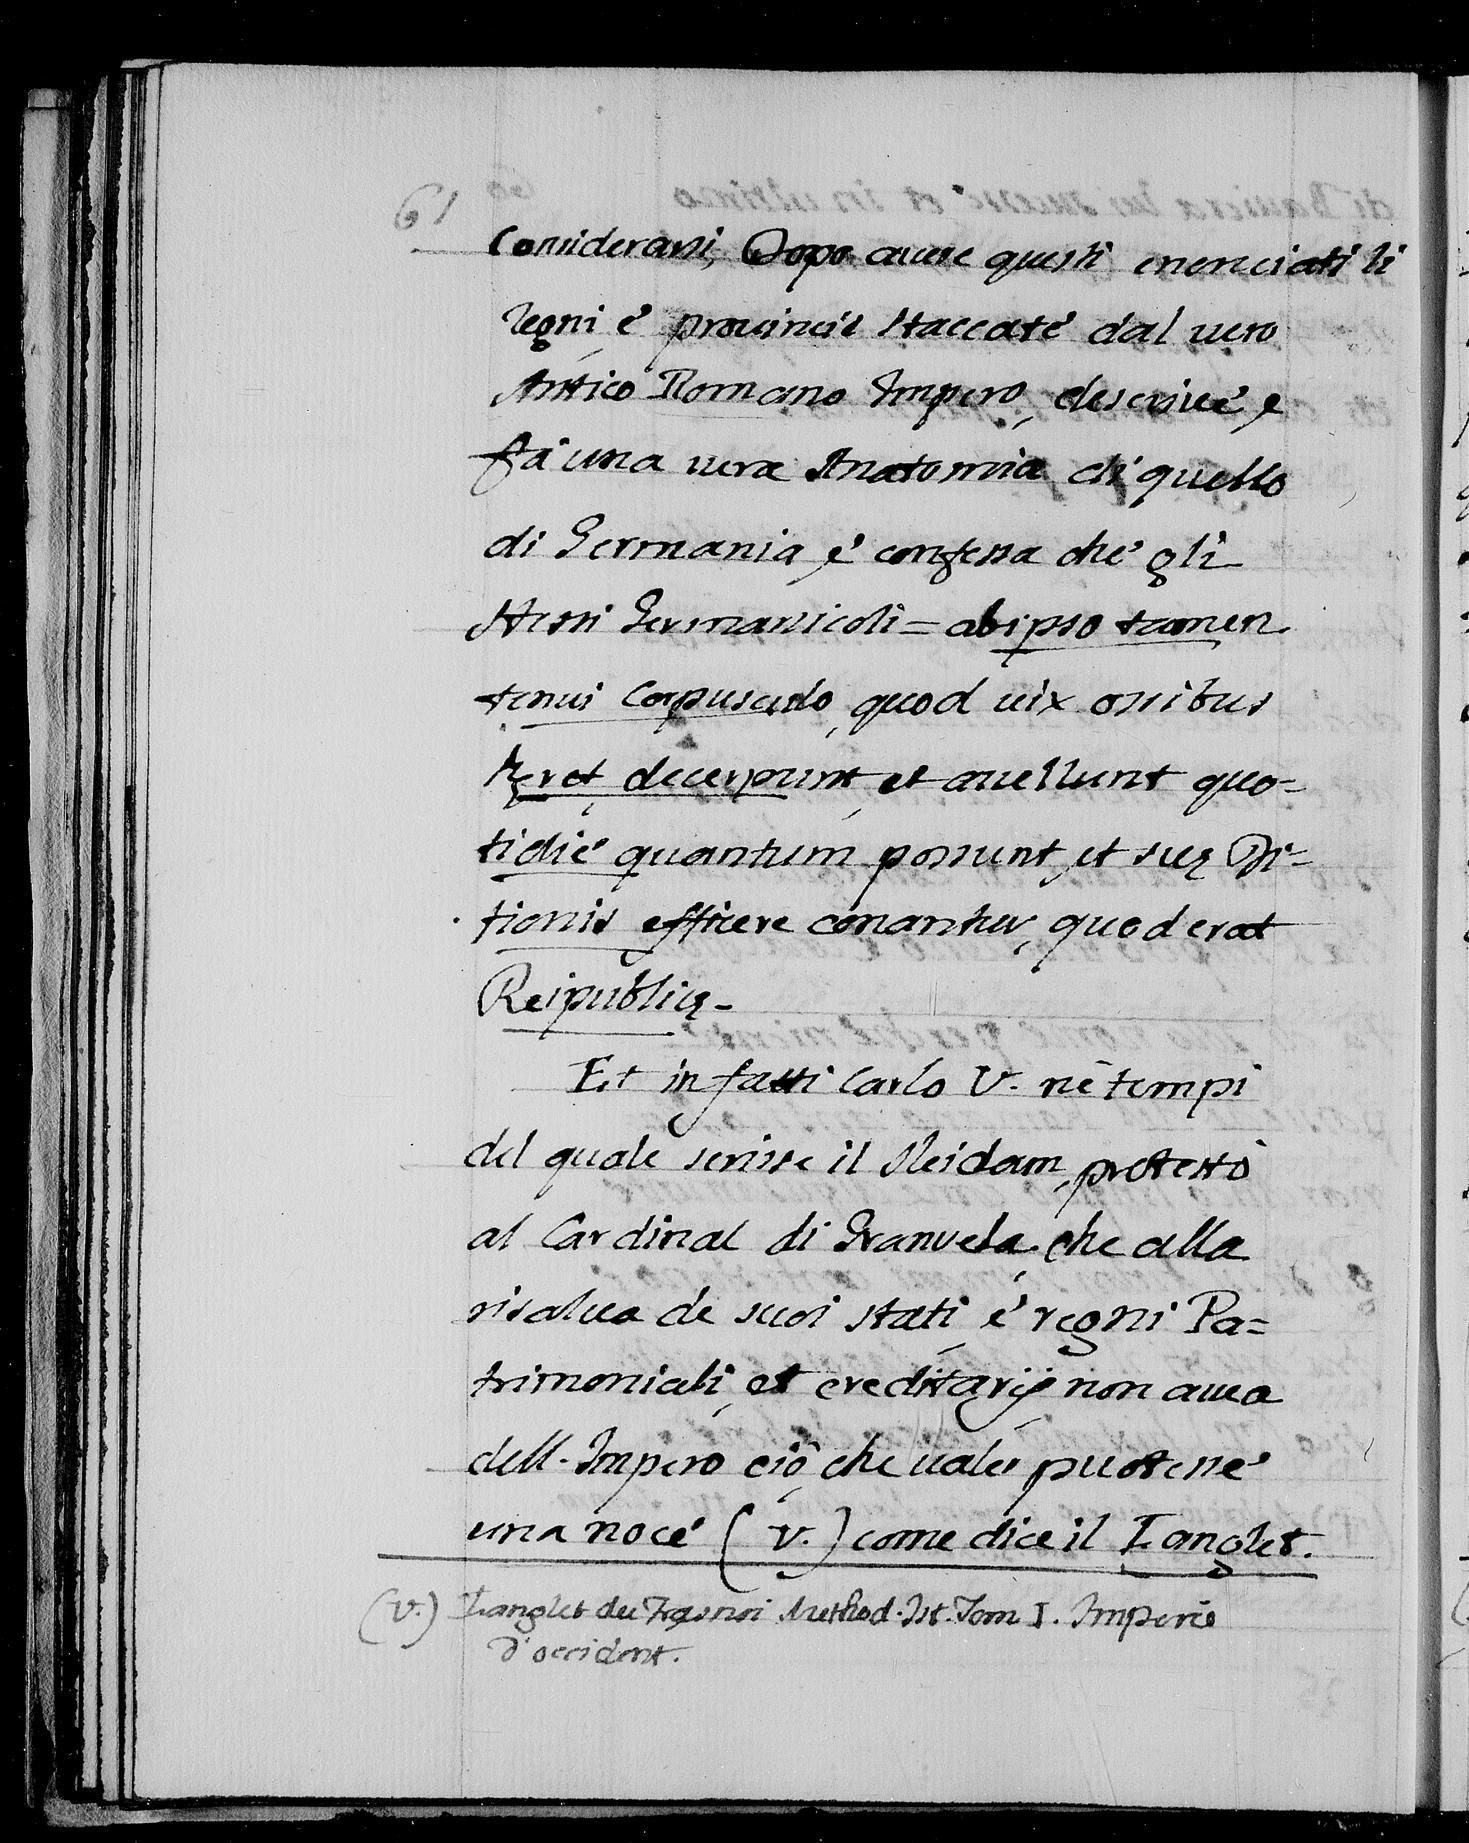 61
Considerarsi, Dopo auere questi enonciati li
regni, e' prouincie staccate' dal uero
Antico Romano Impero, descriue', e
fa' una uera Anatomia di quello
di Germania, e' confessa che' gli
stessi Germanicoli = ab ipso tamen
tenui Corpusculo, quod uix ossibus
heret, decerpunt, et auellunt quo=
tidie' quantum possunt, et suę Di=
tionis efficere conantur, quod erat
Reipublicę-
Et in fatti Carlo V. nè tempi
del quale scrisse il Sleidam, protestò
al Cardinal di Granuela, che alla
risalua de suoi stati, e' regni Pa=
trimoniali, et ereditarij, non auea
dell. Impero ciò, che uales puotene'
una noce' (V.) come dice il Langlet.
(V.) Langlet du Frasnoi Method. Ist. Tom I. Imperie
d'occident.